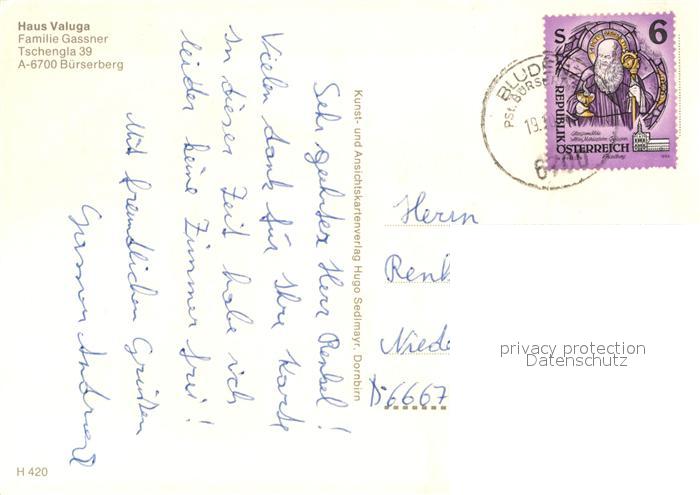 Haus Valuga
Familie Gassner
Tschengla 39
A-6700 Bürserberg
Sehr geehrter Herr Renkel!
Vielen dank für Ihre Karte
In dieser Zeit habe ich
leider keine Zimmer frei!
Mit freundlichen Grüßen
Gassner
H 420
Kunst- und Ansichtskartenverlag Hugo Sedlmayr, Dornbirn
BLUD
PSt. BÜRSE
19.
6700
S 6
REPUBLIK
ÖSTERREICH
Herrn
Renk
Niede
D 6667
privacy protection
Datenschutz